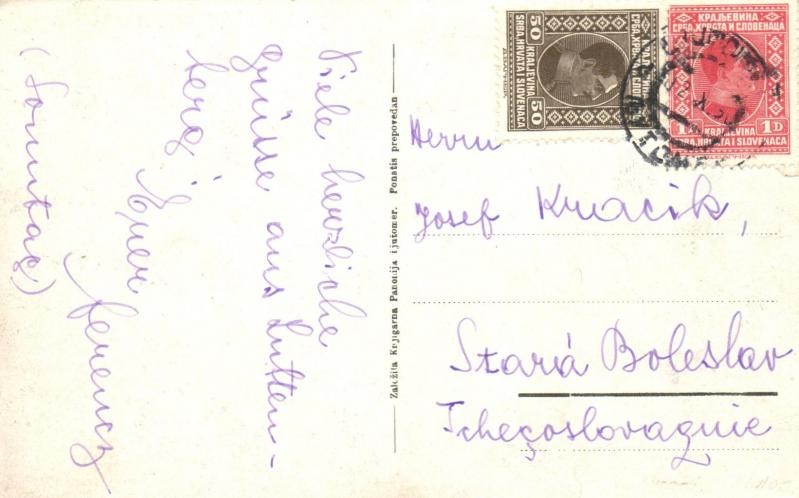 Viele herzliche
Grüsse aus Lutten-
berg,
Euer
Ferencz
(Sonntag)
Založila Knjigarna Panonija Ljutomer. Ponatis prepovedan
Herrn
Josef Kracik,
Stará Boleslav
Tchecoslovaquie
50 КРАЉЕВИНА 50
СРБА, ХРВАТА И СЛОВЕНАЦА
KRALJEVINA
SRBA, HRVATA I SLOVENACA
50 50
КРАЉЕВИНА
СРБА, ХРВАТА И СЛОВЕНАЦА
1 KRALJEVINA 1D
SRBA, HRVATA I SLOVENACA